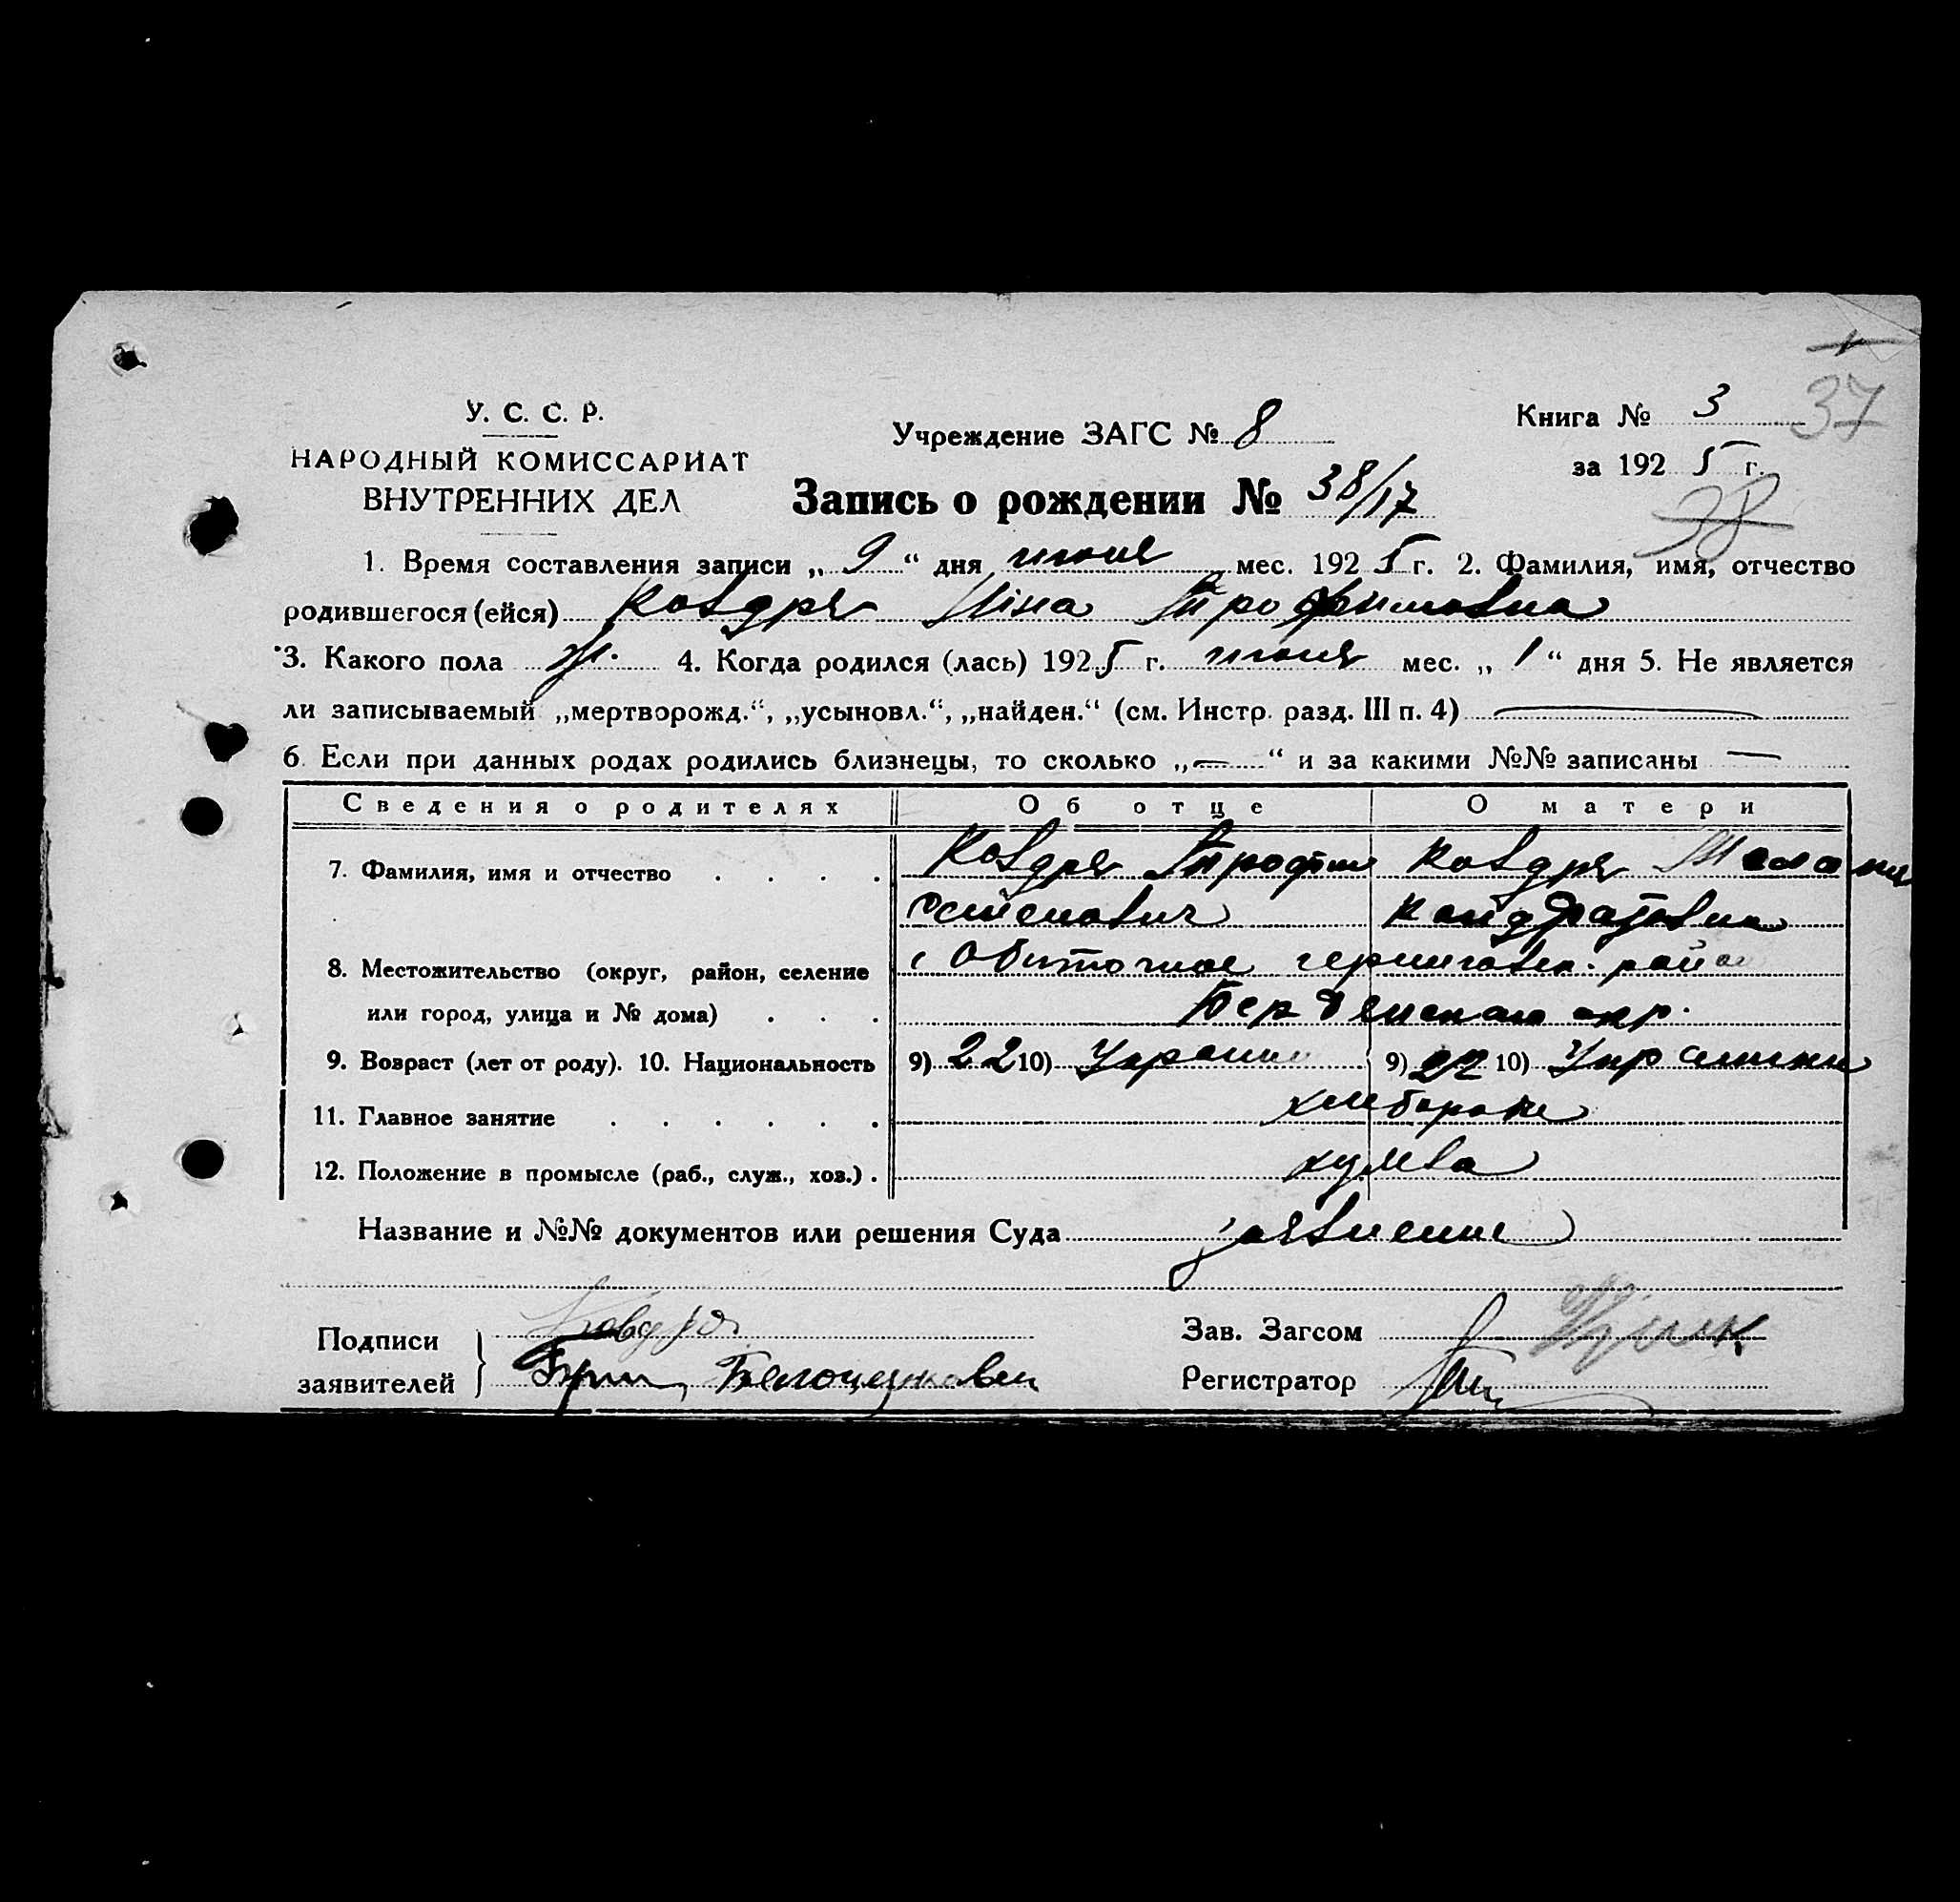 У. С. С. Р.
НАРОДНЫЙ КОМИССАРИАТ
ВНУТРЕННИХ ДЕЛ
Учреждение ЗАГС № 8
Книга № 3
37
за 1925 г.
38
Запись о рождении № 38/17
1. Время составления записи „ 9 “ дня июня мес. 1925 г. 2. Фамилия, имя, отчество
родившегося (ейся) Ковдря Ніна Трофимовна
3. Какого пола ж. 4. Когда родился (лась) 1925 г. июня мес. „ 1 “ дня 5. Не является
ли записываемый „мертворожд.“, „усыновл.“, „найден.“ (см. Инстр. разд. III п. 4) —
6. Если при данных родах родились близнецы, то сколько „ — “ и за какими №№ записаны —
Сведения о родителях Об отце О матери
7. Фамилия, имя и отчество . . . . Ковдря Трофим Ковдря Мелания
Остапович Кондратовна
8. Местожительство (округ, район, селение с Обиточное черниговск. район
или город, улица и № дома) . . . Бердянского окр.
9. Возраст (лет от роду). 10. Национальность 9) 22 10) Украин 9) 22 10) Украинка
11. Главное занятие . . . . . . хлебороб
12. Положение в промысле (раб., служ., хоз.) .
Название и №№ документов или решения Суда заявление
Подписи Ковдря Зав. Загсом
заявителей Белоцерковец Регистратор